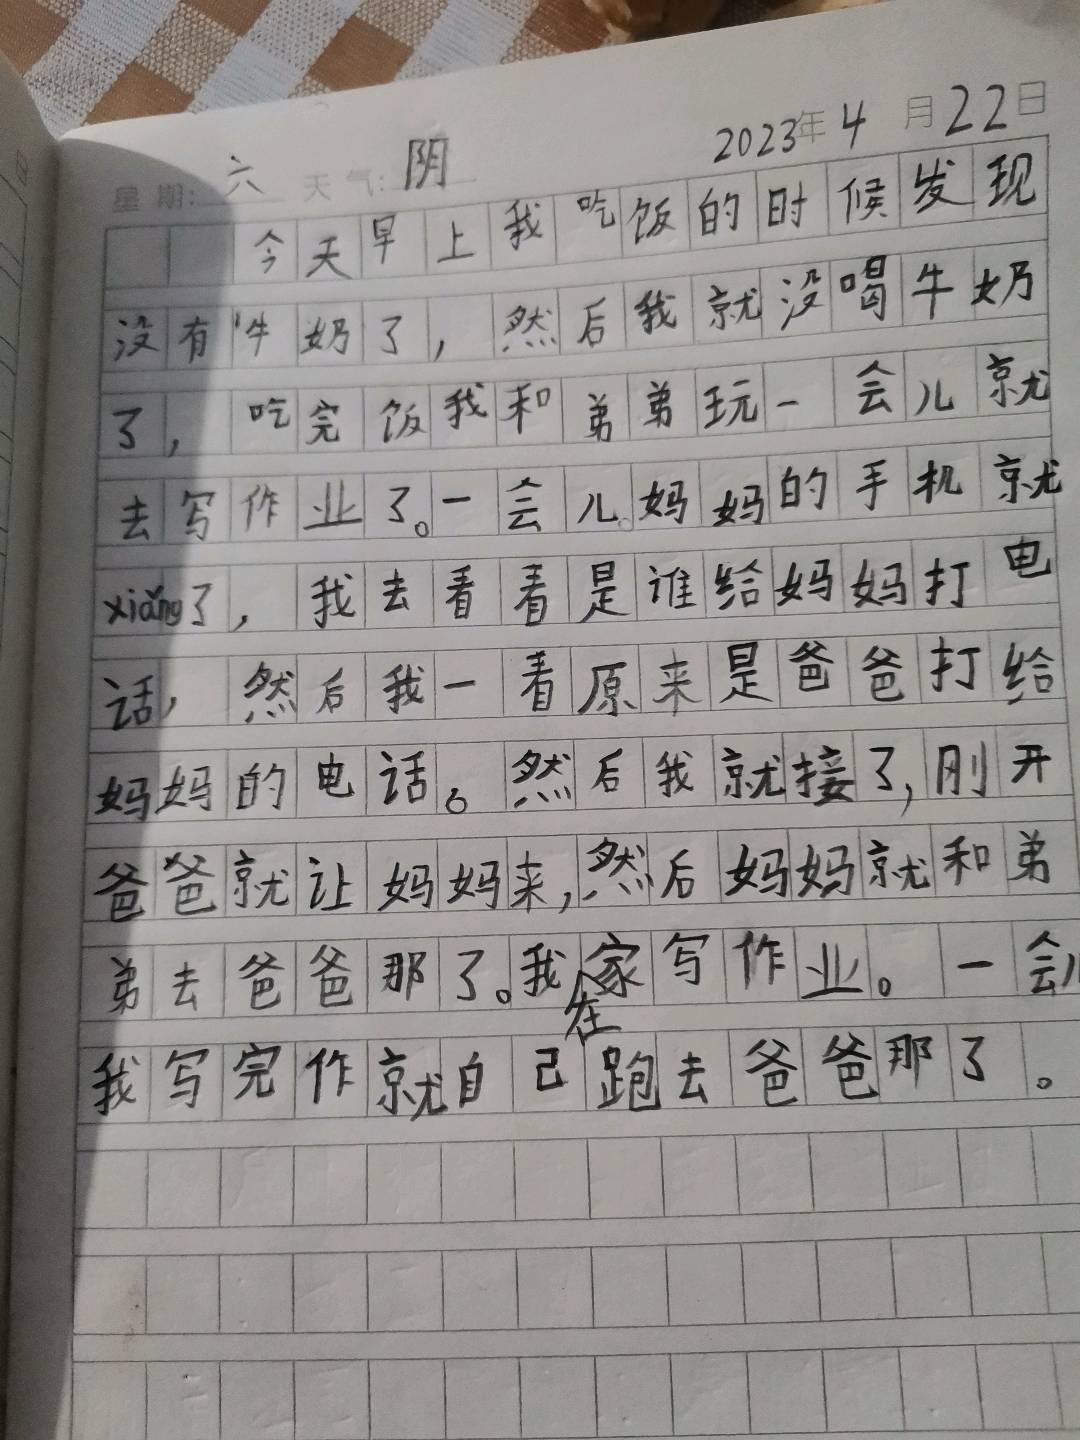 2023年4月22日
星期:六 天气:阴
今天早上我吃饭的时候发现
没有牛奶了，然后我就没喝牛奶
了，吃完饭我和弟弟玩一会儿就
去写作业了。一会儿妈妈的手机就
xiǎng了，我去看看是谁给妈妈打电
话，然后我一看原来是爸爸打给
妈妈的电话。然后我就接了,刚开
爸爸就让妈妈来,然后妈妈就和弟
弟去爸爸那了。我在家写作业。一会儿
我写完作就自己跑去爸爸那了。